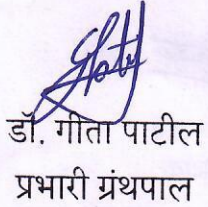 डॉ. गीता पाटील
प्रभारी ग्रंथपाल